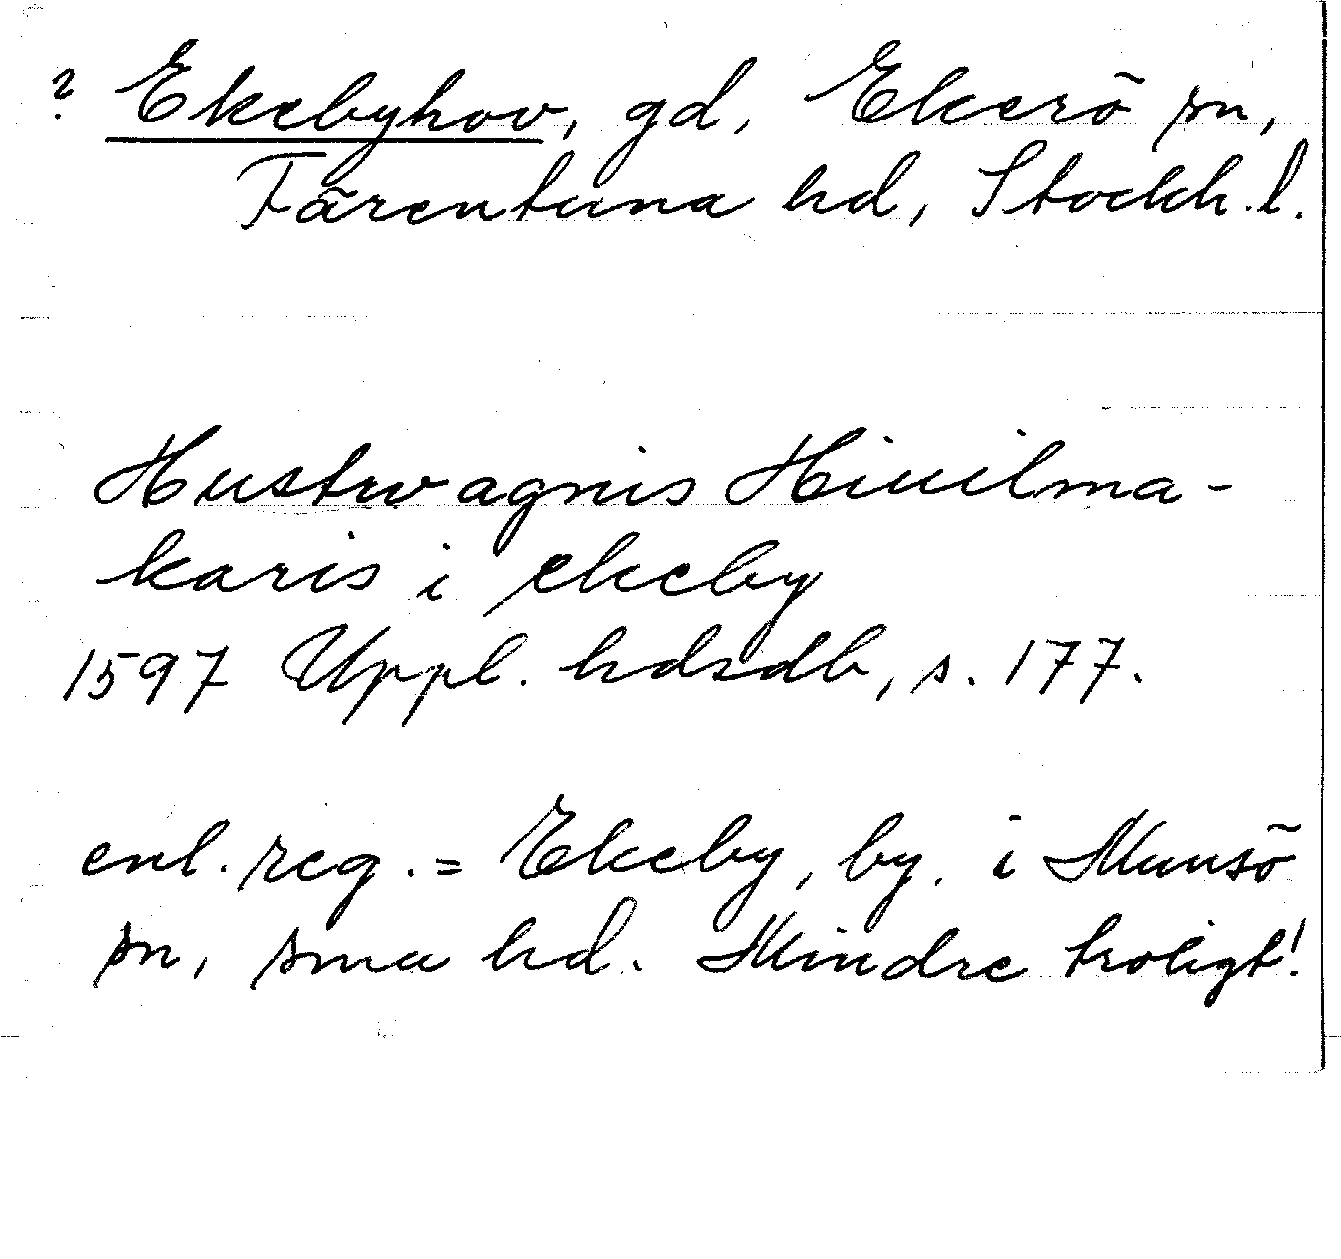 ? Ekebyhov, gd, Ekerö sn,
Färentuna hd, Stockh. l.
Hustrw agnis Hiuilma-
karis i ekeby
1597 Uppl. hdsdb, s. 177.
enl. reg. = Ekeby, by. i Munsö
sn, sma hd. Mindre troligt!